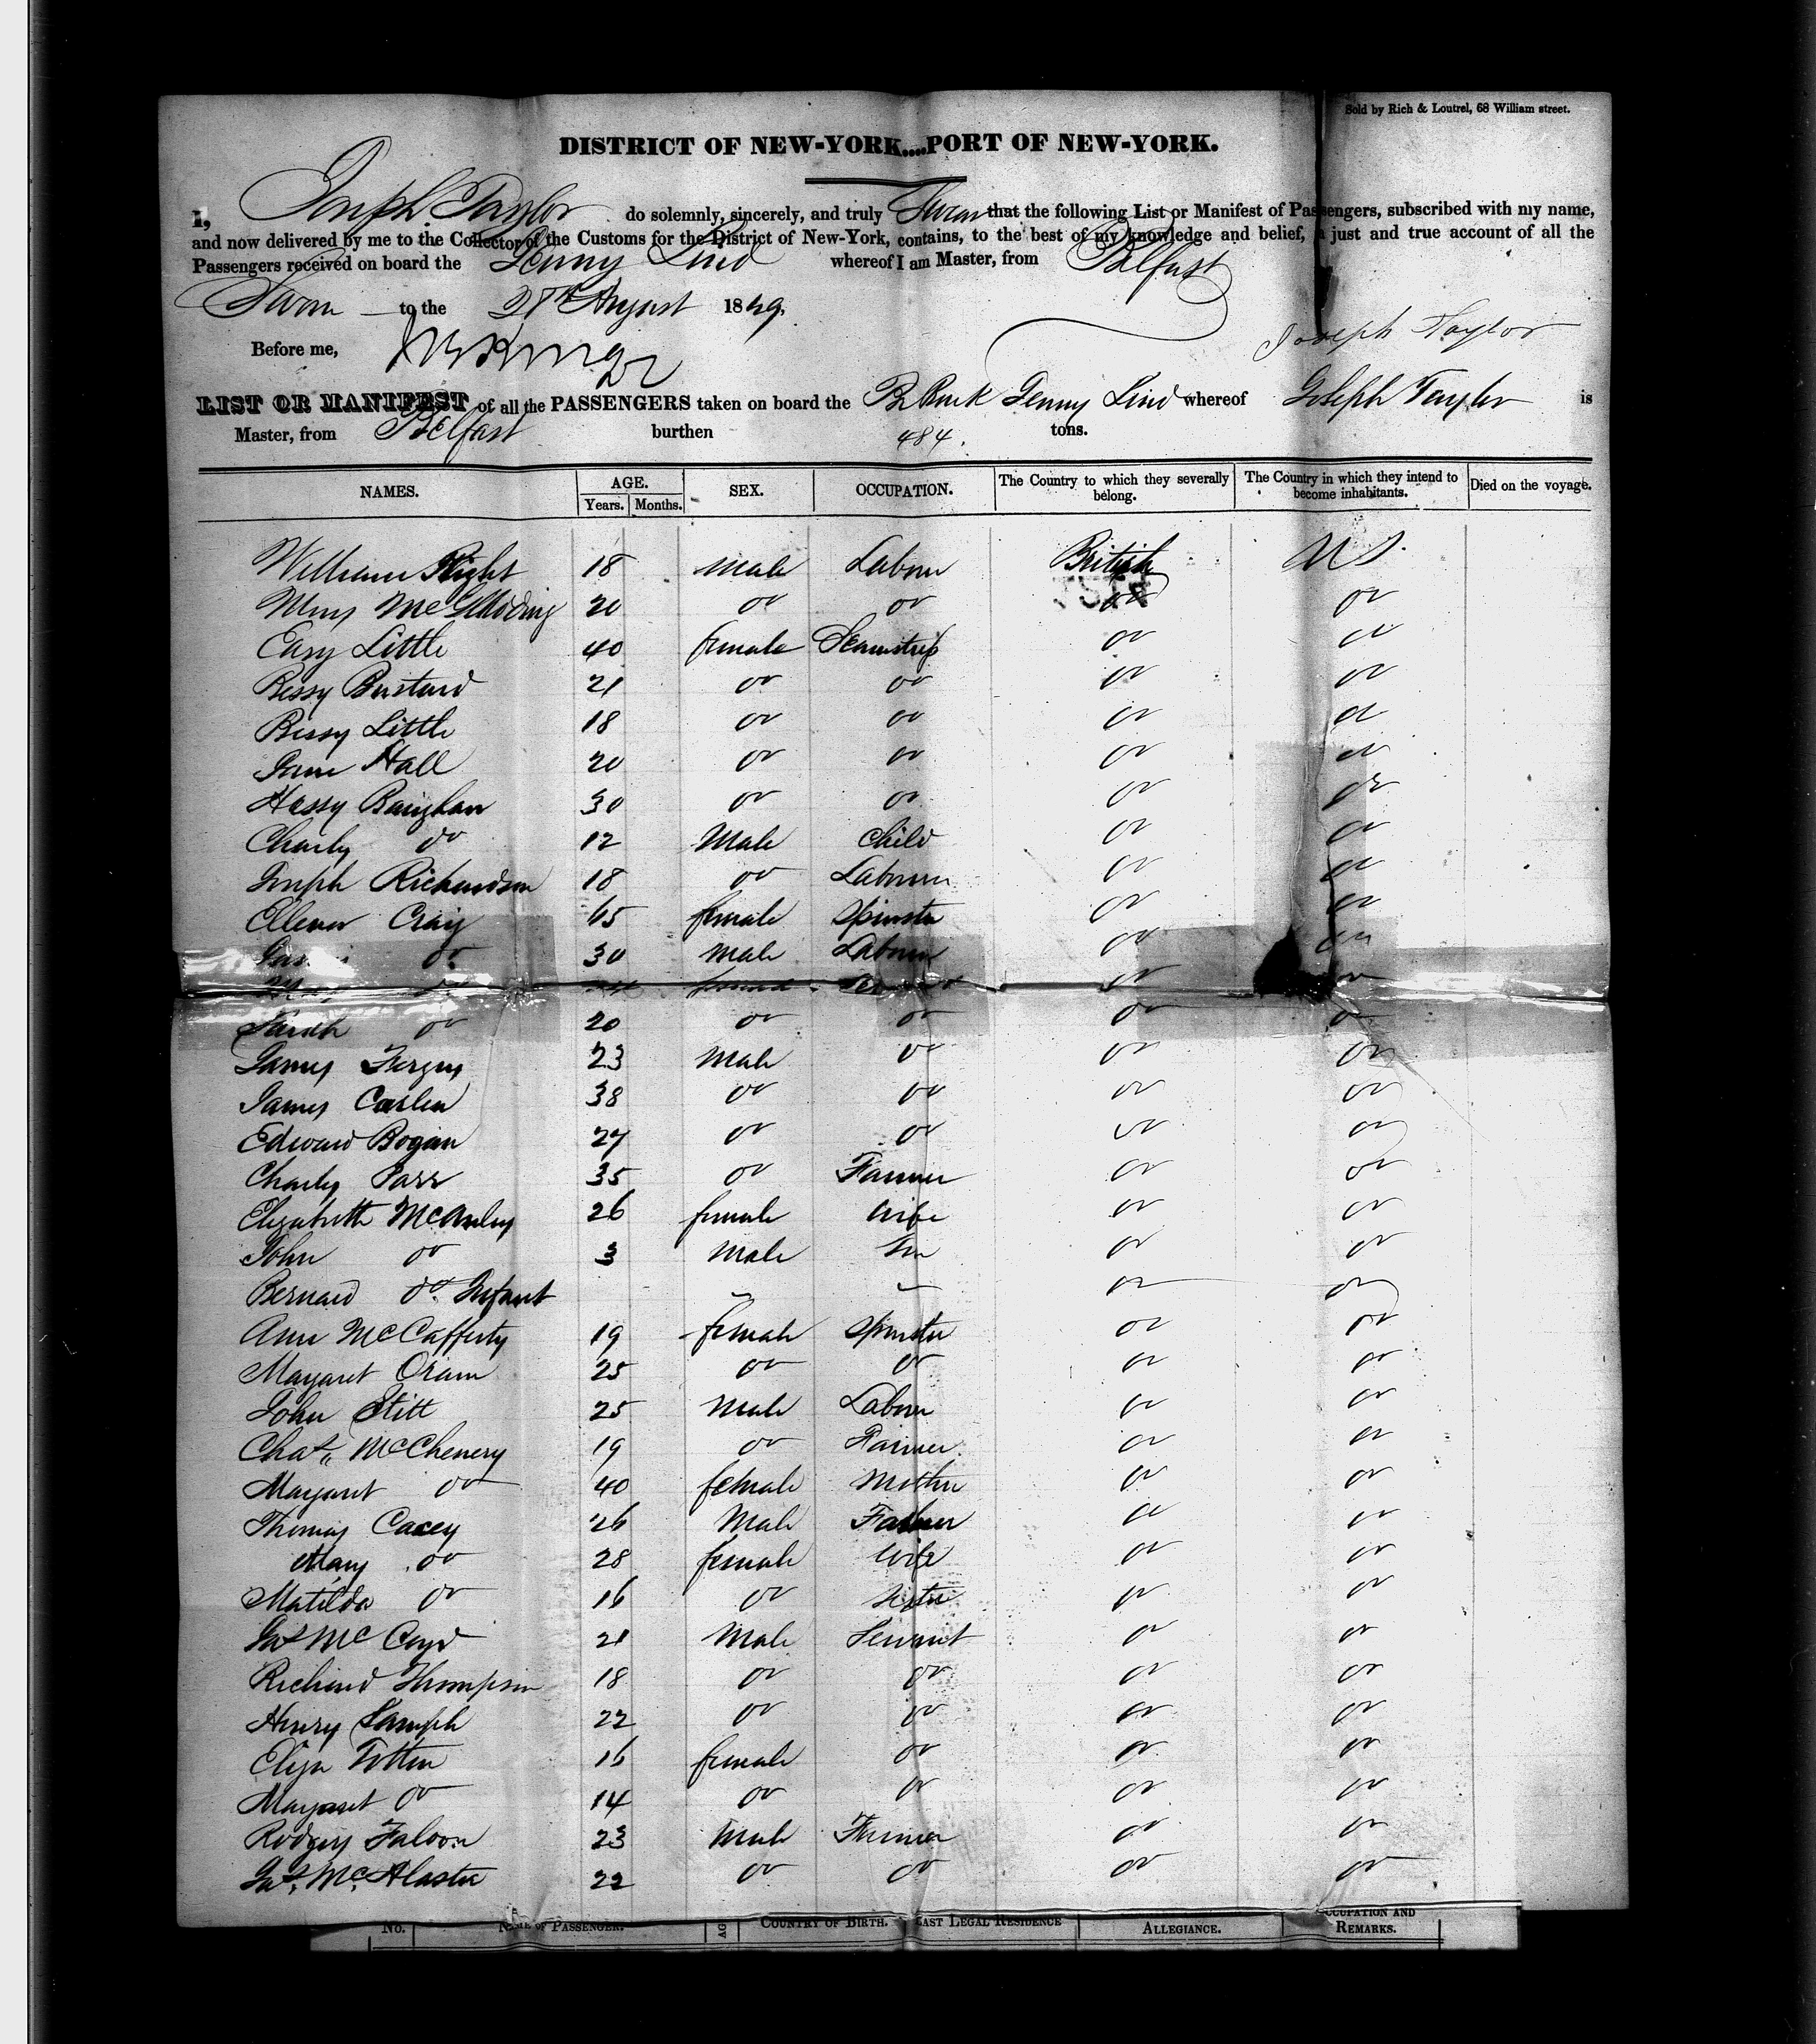 Sold by Rich & Loutrel, 68 William street.
DISTRICT OF NEW-YORK....PORT OF NEW-YORK.
I, Joseph Taylor do solemnly, sincerely, and truly Swear that the following List or Manifest of Passengers, subscribed with my name,
and now delivered by me to the Collector of the Customs for the District of New-York, contains, to the best of my knowledge and belief, a just and true account of all the
Passengers received on board the Jenny Lind whereof I am Master, from Belfast
Sworn to the 28th August 1849.
Joseph Taylor
Before me,
LIST OR MANIFEST of all the PASSENGERS taken on board the Br Bark Jenny Lind whereof Joseph Taylor is
Master, from Belfast burthen 484. tons.
NAMES. AGE. Years. Months. SEX. OCCUPATION. The Country to which they severally belong. The Country in which they intend to become inhabitants. Died on the voyage.
William Right 18 male Labour British US
20 do do do do
Easy Little 40 female Seamstress do do
Bessy Bustard 21 do do do do
Bessy Little 18 do do do do
Jane Hall 20 do do do do
Hassy 30 do do do do
Charly do 12 Male Child do do
Joseph Richardson 18 do Labourer do do
Ellenor Craig 65 female Spinster do do
Jas do 30 male Labour do do
do do do
Sarah do 20 do do do do
James Fergus 23 Male do do do
James Carlen 38 do do do do
Edward Bogan 27 do do do do
Charly Parr 35 do Farmer do do
Elizabeth McAnley 26 female wife do do
John do 3 Male Son do do
Bernard do Infant do do
Ann McCafferty 19 female Spinster do do
Margaret Oram 25 do do do do
John Stitt 25 Male Labour do do
Chas McChenery 19 do Farmer do do
Margaret do 40 female Mother do do
Thomas Cacey 26 Male Farmer do do
Mary do 28 female wife do do
Matilda do 16 do Sister do do
Jas Mc 21 Male Servant do do
Richard Thompson 18 do do do do
Henry Samph 22 do do do do
Eliza Totten 16 female do do do
Margaret do 14 do do do do
Rodgers Faloon 23 Male Farmer do do
Jas. McAlaster 22 do do do do
No. NAME OF PASSENGER. AG COUNTRY OF BIRTH. LAST LEGAL RESIDENCE ALLEGIANCE. OCCUPATION AND REMARKS.